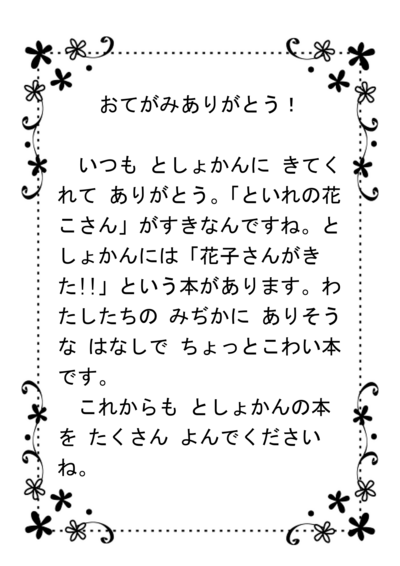 おてがみありがとう！
　いつも としょかんに きてく
れて ありがとう。「といれの花
こさん」がすきなんですね。と
しょかんには「花子さんがき
た!!」という本があります。わ
たしたちの みぢかに ありそう
な はなしで ちょっとこわい本
です。
　これからも としょかんの本
を たくさん よんでください
ね。